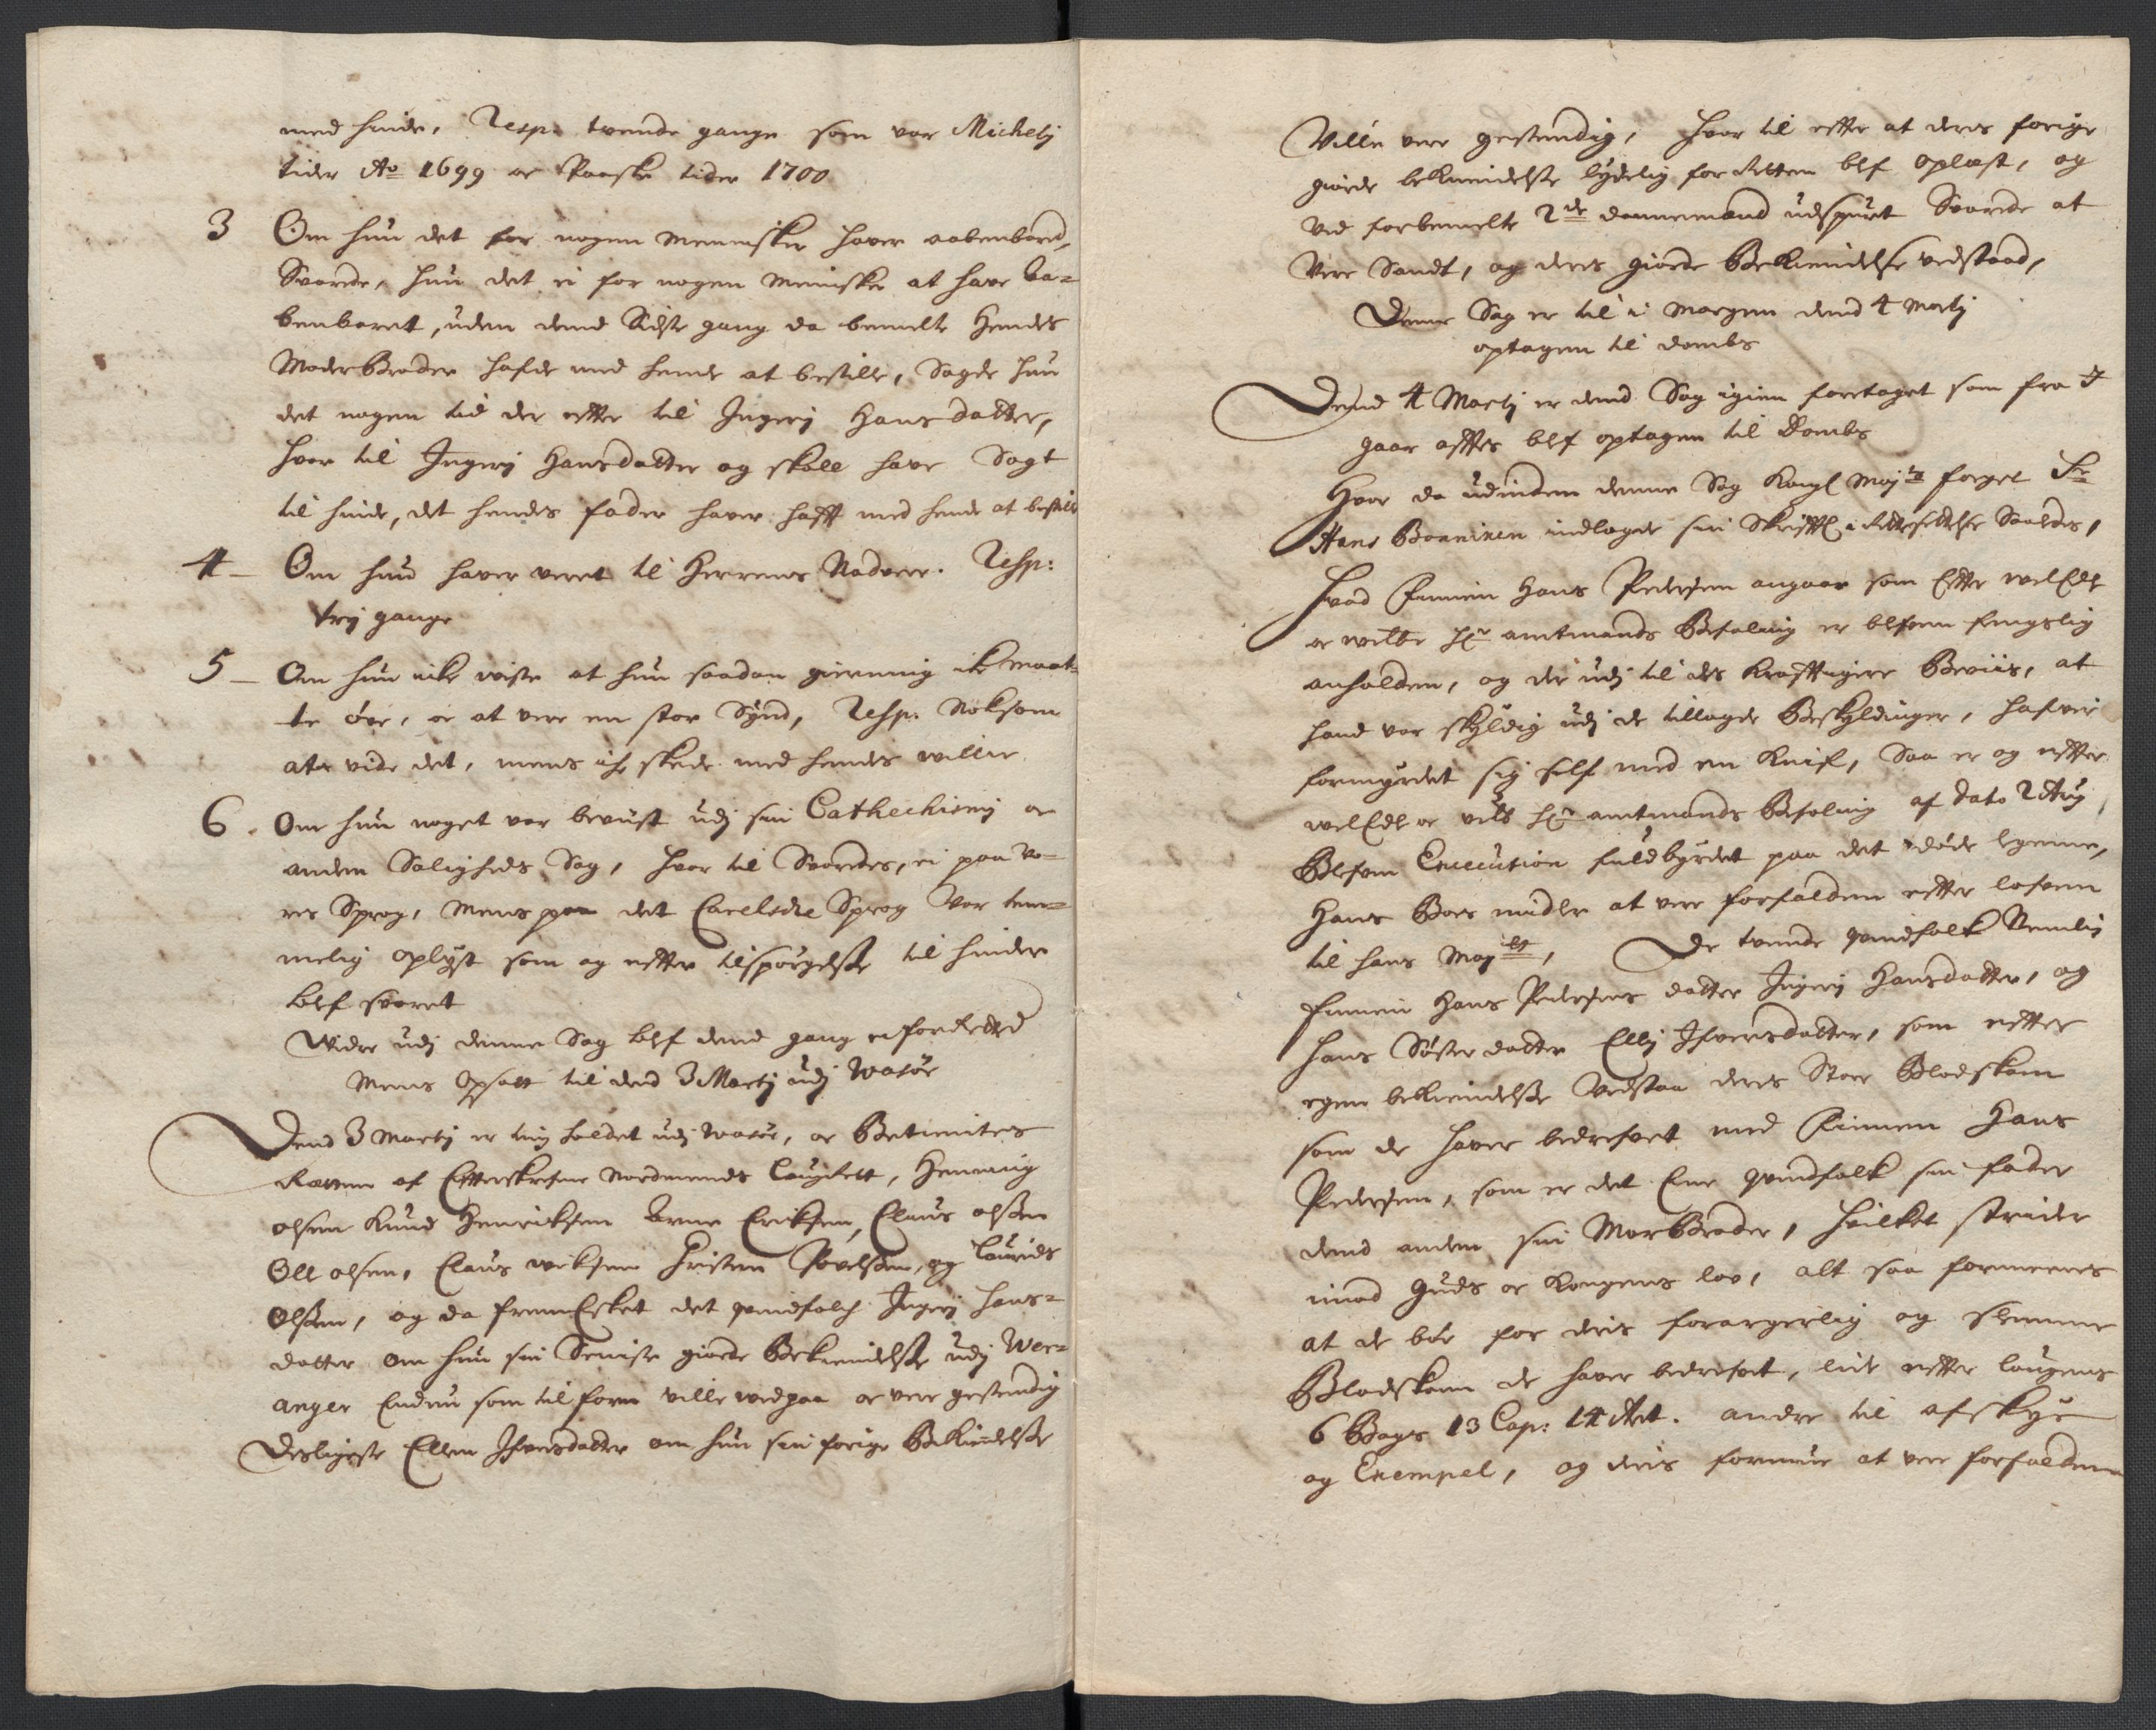 med hinde, Resp. tvende gange som var Michely
tider Ao 1699 oc Paaske tider 1700
3 Om hun det for nogen Mennisker haver aabenbared,
Svarde, hun det ei for nogen Menniske at have Aa=
benbaret, uden dend Sidste gang da bemelte Hendes
Moderbroder hafde med hende at bestille, Sagde hun
det nogen tid der effter til Ingerj Hansdatter,
Hvor til Ingerj Hansdatter og skall have Sagt
til hinde, det hendes fader haver hafft med hende at bestille
4 - Om hun haver veret til Herrens Nadvere. Resp:
trej gange
5 - Om hun icke viste at hun saadan gierning ick maat=
te øve, oc at vere en stor Synd, Resp. Noksom
at vide det, mens icke skede med hendes willie
6. Om hun noget var bevist udj sin Cathechismj oc
anden Saligheds Sag, Hvor til Svardes, ei paa vo=
res Sprog, Mens paa det Carelsche Sprog var temme=
melig oplyst som og effter tilspørgelse til hinder
blef svaret
Vider udj denne Sag blef dend gang ei forretted
Mens Opsatt til dend 3 Martij udj Wadsøe
Dend 3 Martij er ting holdet udj Wadsøe, oc Betientes
Retten af Efterskrefne Nordmends Laugrett, Henning
olsen Knud Henriksen Arne Eriksen, Claus olsen
Oll olsen, Claus Christen Povelsen, og Laurids
Olsen, og da fremEsket det qvindfolch Ingerj Hans=
datter om hun sin Seniste giorde Bekiendelse udj Wer=
anger Endnu som tilforn ville vedgaa oc vere gestendig
Desligeste Ellen Ifversdatter om hun sin forige Bekiendelse
Ville vere gestendig, Hvor til effter at deres forige
giorde bekiendelse lydelig for Retten blef oplæst, og
ved forbemelte 2de dannemænd udspurt Svarede at
Vere Sandt, og deres giorde Bekiendelse vedstaad,
Denne Sag er til i Morgen dend 4 Martj
optagen til dombs
Dend 4 Martij er dend Sag igien foretaget som fra I
gaar afftes blef optagen til Dombs
Hvor da udinden denne Sag Kongl Mayts foget Sr
Hans Bonnixen indlagde sin Skrifftl i Rettesettelse Saaledes,
Hvad Finnen Hans Pedersen angaar som Effter velEdle
oc velbr Hr amtmands Befaling er blefven fengslig
anholden, og der udj til des kraftigere Beviis, at
hand var skyldig udj de tillagde Beskyldinger, hafver
formyrdet sig self med en Knif, Saa er og effter
velEdle oc velb Hr amtmands Befaling af dato 2
Blefven Execution fuldbyrdet paa det døde legeme,
Hans Boes midler at vere forfalden effter lofven
til hans Mayst, De tvende qvindfolk Nemlig
Finnen Hans Pedersens datter Ingerj Hansdatter, og
hans Søster datter Ellj Ifversdatter, som effter
egen bekiendelse vedstaa deres Store Blodskam
som de haver bedrefvet med Finnen Hans
Pedersen, som er det Ene qvindfolk sin fader
dend anden sin Morbroder, Hvilket strider
imod Guds oc Kongens lov, alt saa formeenes
at de bør for deris forargerlig og slemme
Blodskam de haver bedrefvet, lide effter lougens
6 Bogs 13 Cap: 14 Art. andre til afskye
og Exempel, og deris formue at vere forfalden